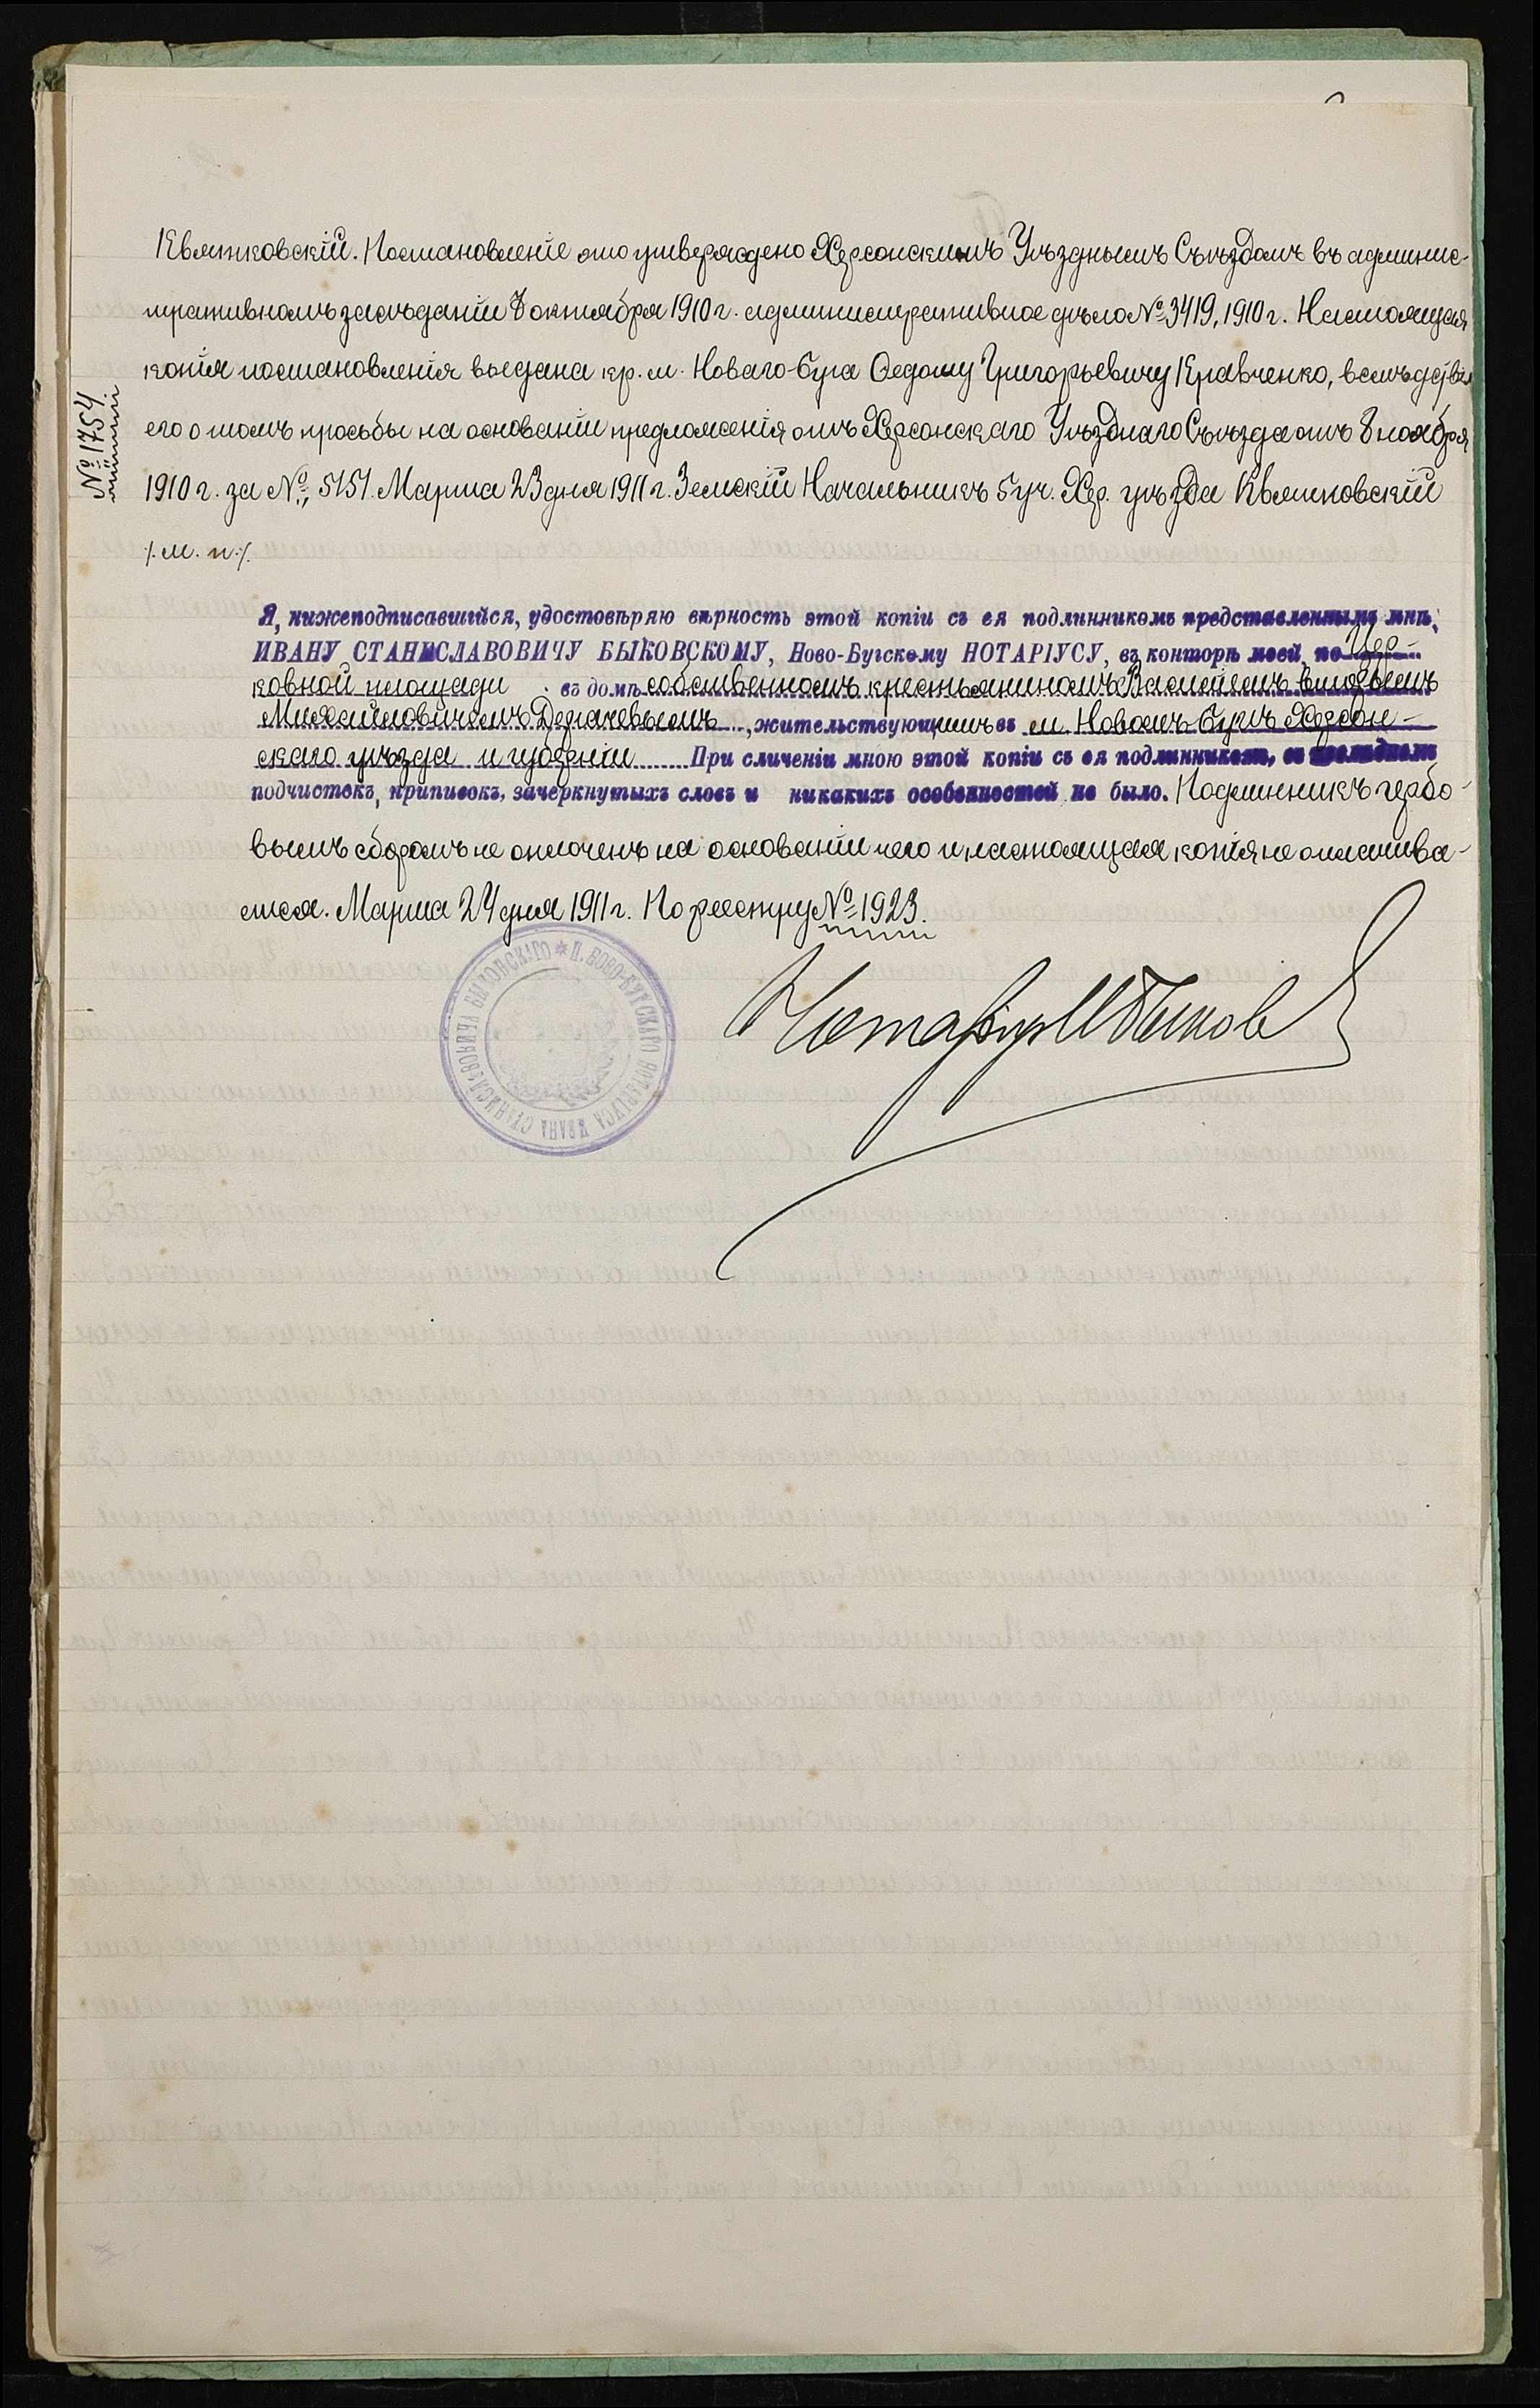 Квятковскій. Постановленіе это утверждено Херсонскимъ Уѣзднымъ Съѣздомъ въ админис-
тративномъ засѣданіи 8 октября 1910 г. административное дѣло № 3419, 1910 г. Настоящая
копія постановленія выдана кр. м. Новаго-Буга Федоту Григорьевичу Кравченко, вслѣдствіе
его о томъ просьбы на основаніи предложенія отъ Херсонскаго Уѣзднаго Съѣзда отъ 8 ноября
1910 г. за №, 5151. Марта 23 дня 1911 г. Земскій Начальникъ 5 уч. Хер. уѣзда Квятковскій
/. м. п. /.
№ 1754
Я, нижеподписавшійся, удостовѣряю вѣрность этой копіи съ ея подлинникомъ представленнымъ мнѣ,
ИВАНУ СТАНИСЛАВОВИЧУ БЫКОВСКОМУ, Ново-Бугскому НОТАРІУСУ, въ конторѣ моей, по Цер-
ковной площади въ домѣ собственномъ крестьяниномъ
Дергачевымъ, жительствующимъ въ м. Новомъ-Бугѣ Херсон-
скаго уѣзда и губерніи При сличеніи мною этой копіи съ ея подлинникомъ, въ послѣднемъ
подчистокъ, приписокъ, зачеркнутыхъ словъ и никакихъ особенностей не было. Подлинникъ гербо-
вымъ сборомъ не оплоченъ на основаніи чего и настоящая копія не оплачива-
ется. Марта 24 дня 1911 г. По реестру № 1923.
Нотаріусъ И Быков
П. НОВО-БУГСКАГО НОТАРІУСА ИВАНА СТАНИСЛАВОВИЧА БЫКОВСКАГО